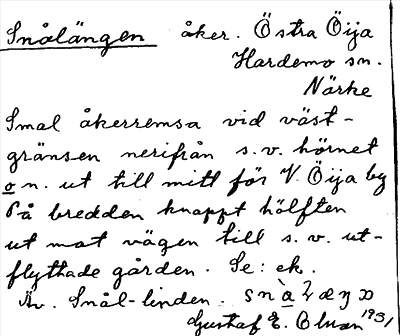 Snålängen åker. Östra Öija
Hardemo sn.
Närke
Smal åkerremsa vid väst-
gränsen nerifrån s.v. hörnet
o n. ut till mitt för V. Öija by
På bredden knappt hälften
ut mot vägen till s.v. ut-
flyttade gården. Se: ek.
Äv. Snål-linden.
Gustaf E. Olsson 1931